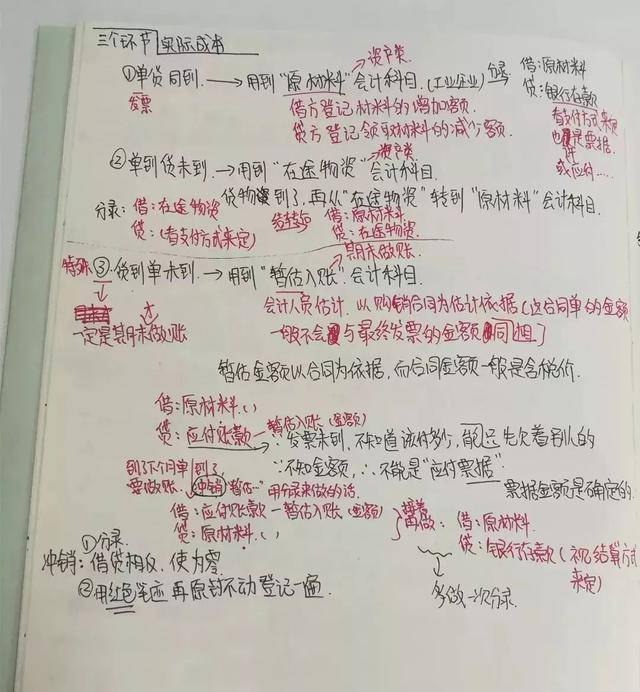 三个环节 实际成本
资产类
①单货同到. → 用到"原材料"会计科目. (工业企业) 分录 借:原材料
贷:银行存款
发票
借方登记材料的增加金额.
贷方登记领取材料的减少金额.
看支付方式来定
也许是票据
或应付……
资产类
②单到货未到. → 用到"在途物资"会计科目.
货物到了,再从"在途物资"转到"原材料"会计科目.
分录: 借:在途物资
贷:(看支付方式来定)
结转后 借:原材料
贷:在途物资
期末做账
特殊 ③.货到单未到. → 用到"暂估入账"会计科目.
一定是期末做的账
会计人员估计. 以购销合同为估计依据(这合同单的金额
一般不会与最终发票的金额同)
暂估金额以合同为依据,而合同金额一般是含税价.
借:原材料.( )
贷:应付账款—暂估入账(金额)
∵发票未到,不知道该付多少,能只先欠着别人的
∵不知金额,∴不能是"应付票据"
票据金额是确定的.
到了下个月单到了
要做账. 冲销"暂估…" 用分录来做的话.
借:应付账款—暂估入账(金额)
贷:原材料.( )
接着
再做: 借:原材料.
贷:银行存款(视结算方式
来定)
多做一次分录.
①分录.
冲销:借贷相反,使为零
②用红色笔迹再原封不动登记一遍.